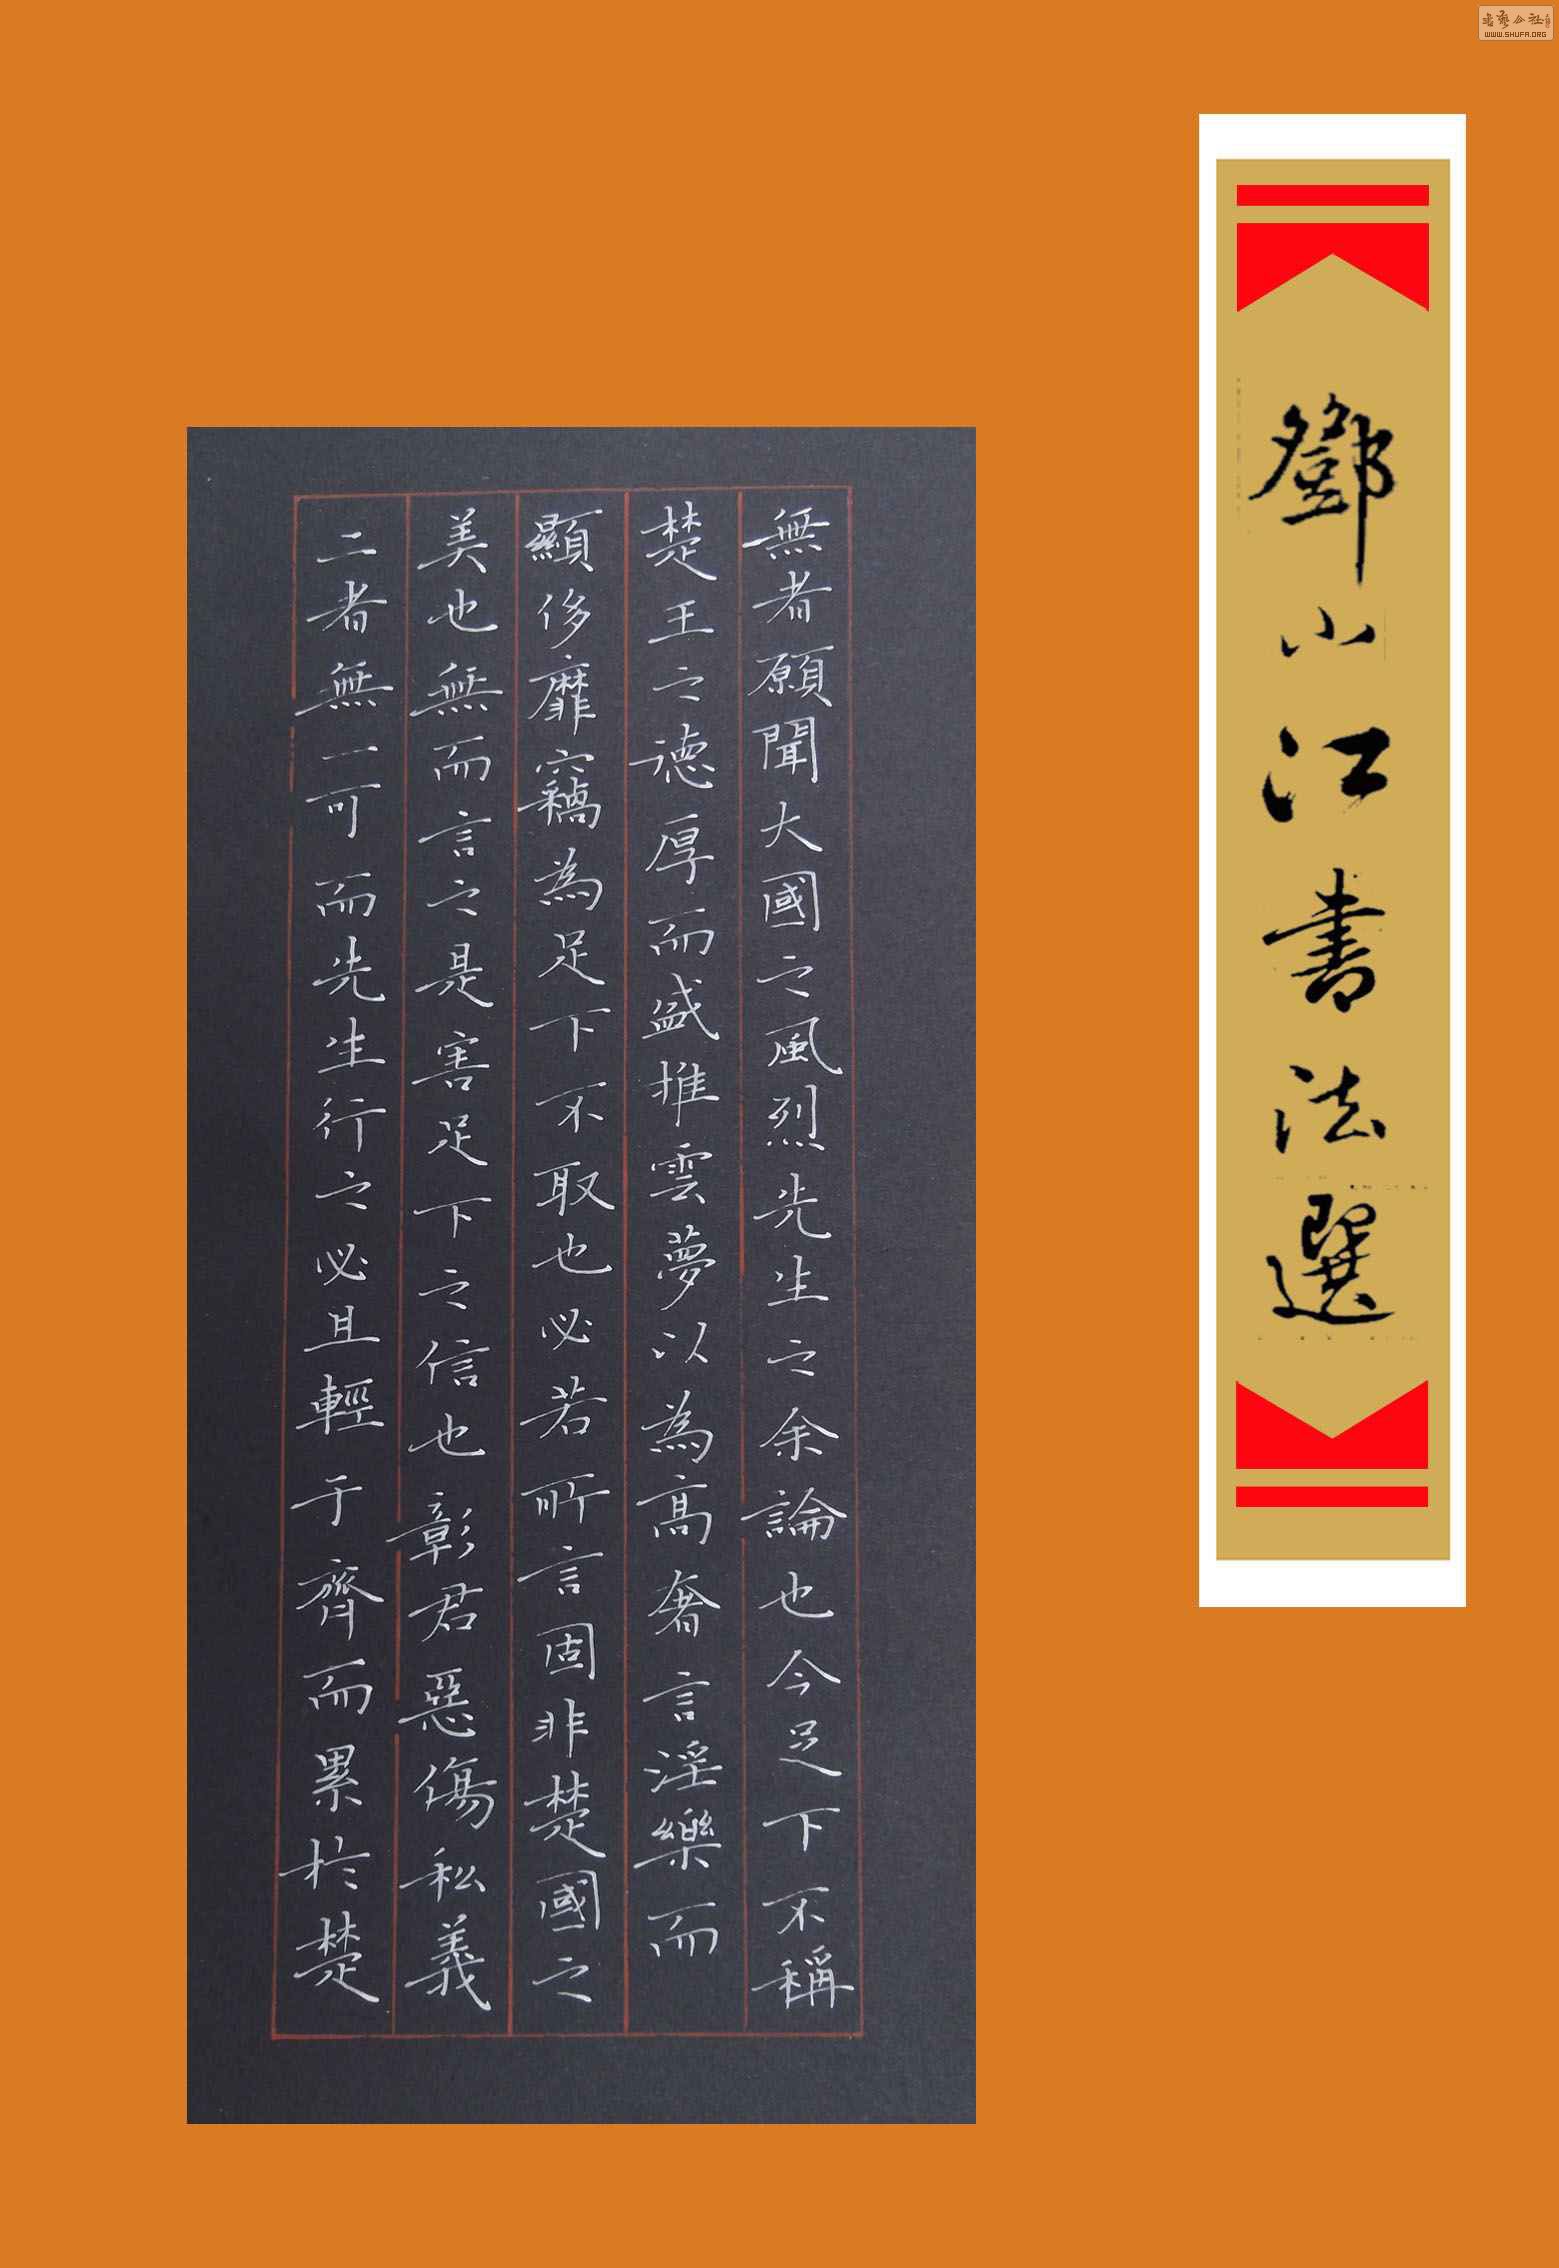 書藝公社
WWW.SHUFA.ORG
鄧小江書法選
無者願聞大國之風烈先生之余論也今足下不稱
楚王之德厚而盛推雲夢以為高奢言淫樂而
顯侈靡竊為足下不取也必若所言固非楚國之
美也無而言之是害足下之信也彰君惡傷私義
二者無一可而先生行之必且輕于齊而累於楚